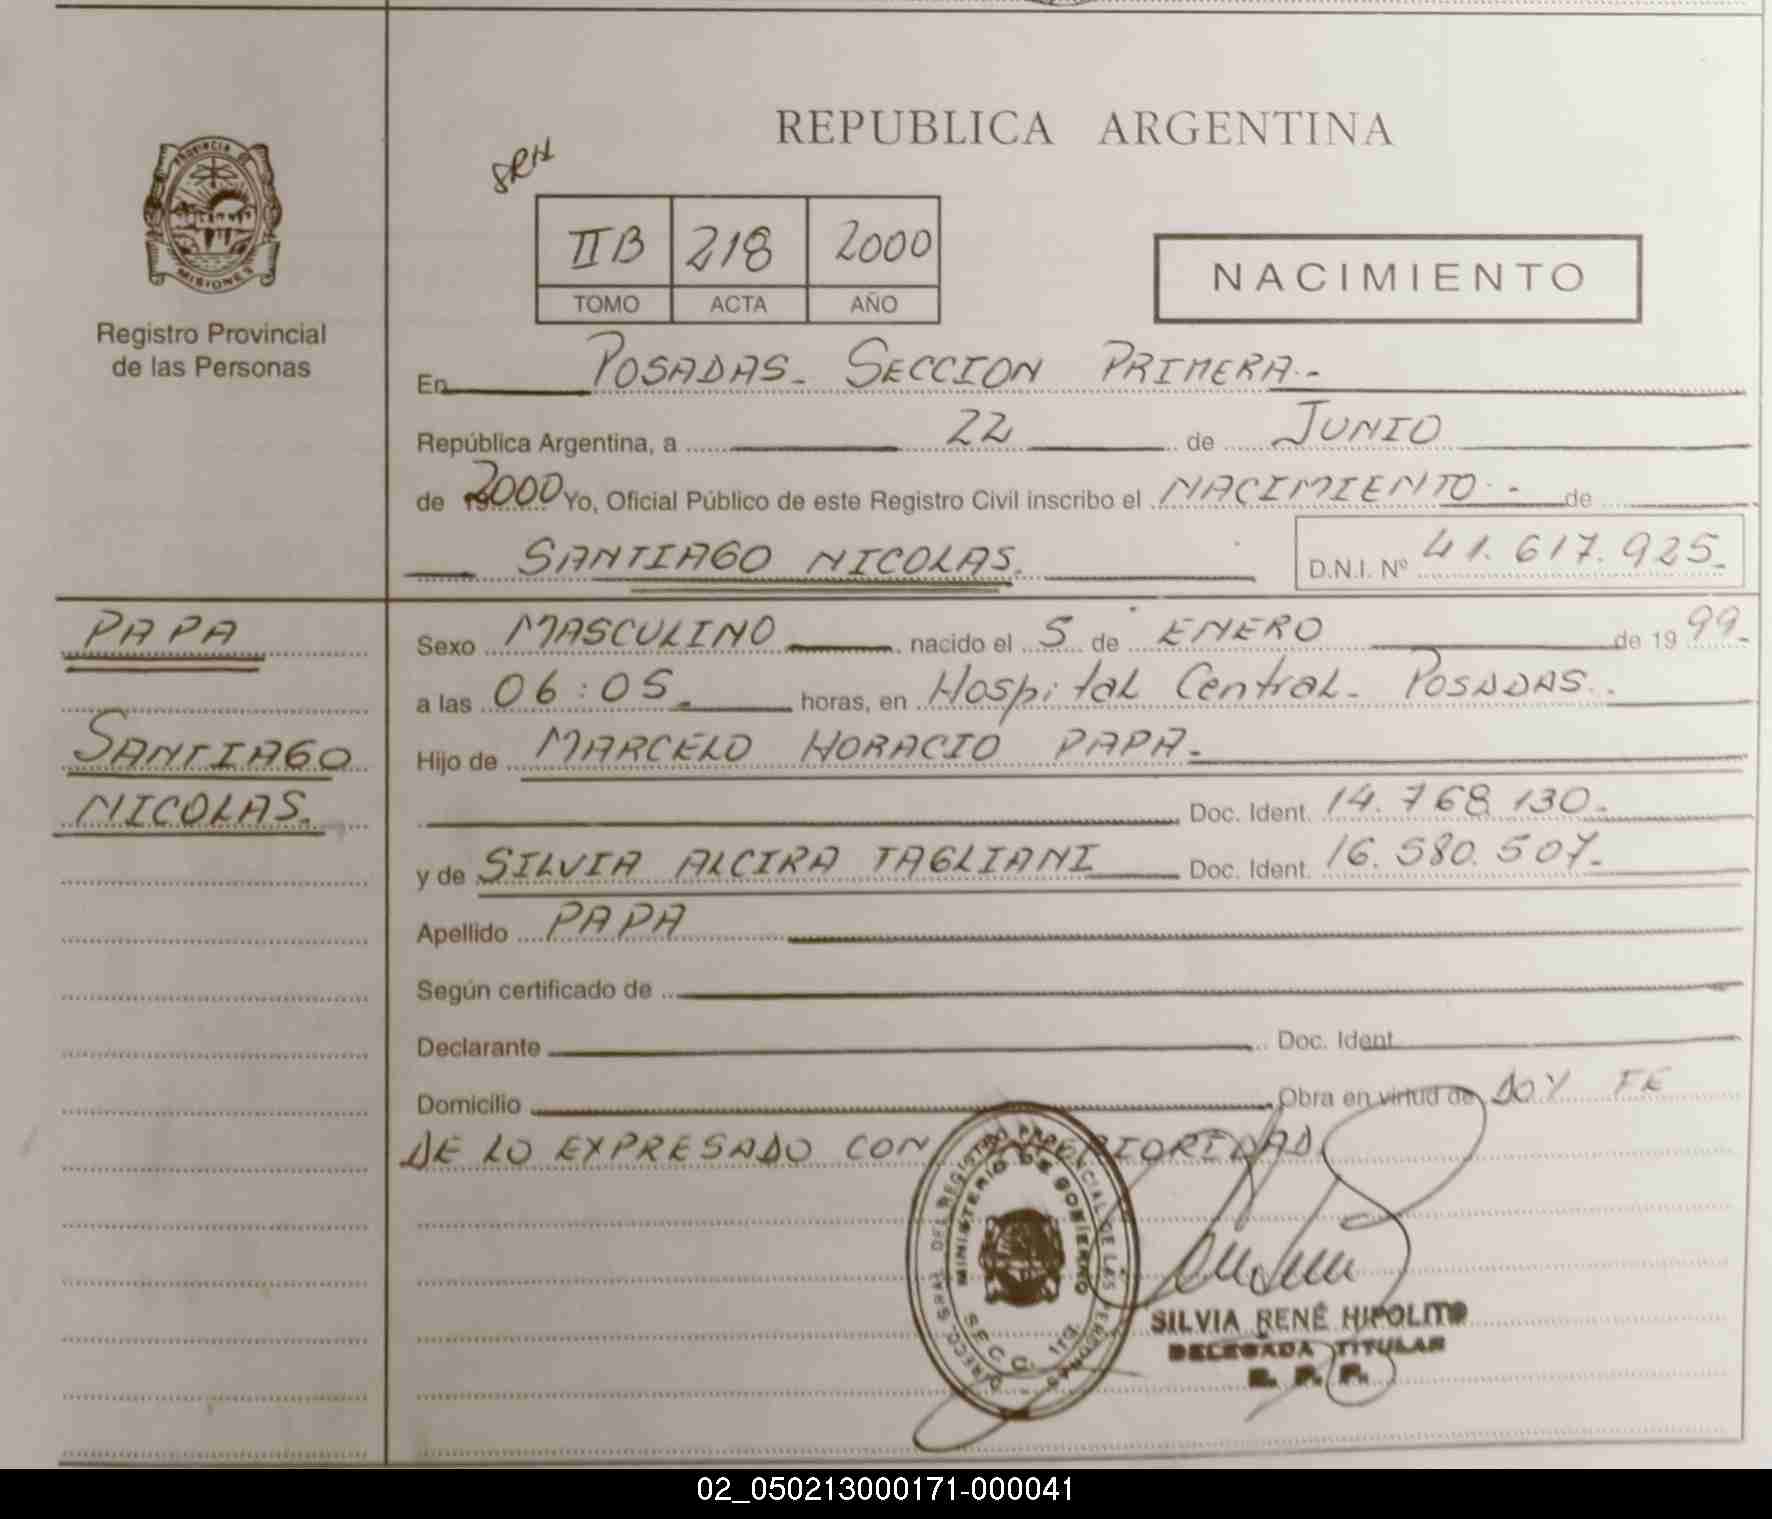 REPUBLICA ARGENTINA
SRH
PROVINCIA DE
MISIONES
Registro Provincial
de las Personas
IIB 218 2000
TOMO ACTA AÑO
NACIMIENTO
En POSADAS. SECCION PRIMERA.-
República Argentina, a 22 de JUNIO
de 2000 Yo, Oficial Público de este Registro Civil inscribo el NACIMIENTO.- de
SANTIAGO NICOLAS. D.N.I. Nº 41.617.925.
PAPA
SANTIAGO
NICOLAS.
Sexo MASCULINO nacido el 5 de ENERO de 1999.
a las 06:05. horas, en Hospital Central. POSADAS.
Hijo de MARCELO HORACIO PAPA.
Doc. Ident. 14.768.130.
y de SILVIA ALCIRA TAGLIANI Doc. Ident. 16.580.507.
Apellido PAPA
Según certificado de
Declarante Doc. Ident.
Domicilio Obra en virtud de DOY FE
DE LO EXPRESADO CON
MINISTERIO DE GOBIERNO
SILVIA RENÉ HIPOLITO
DELEGADA TITULAR
R. P. P.
02_050213000171-000041